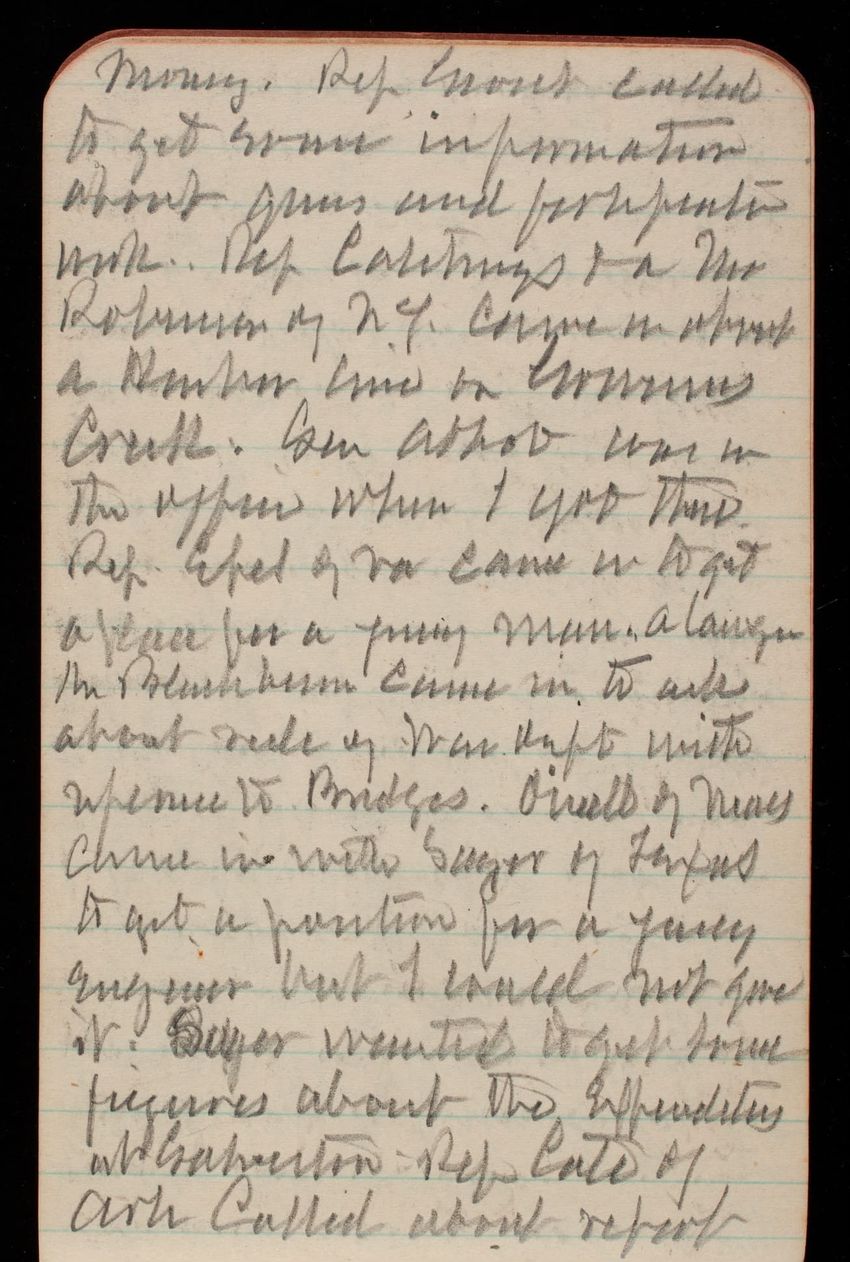 money. Rep Grout called
to get some information
about guns and fortificatn
work. Rep Catchings & a Mr
Robinson of N.Y. came in about
a Harbor line on Gowanus
Creek. Gen Abbot was in
the office when I got there
Rep. Epes of Va came in to get
a place for a young man. A lawyer
Mr Blackburn came in to ask
about rule of War Dept with
refernce to Bridges. Oneall of Mass
came in with Sayer of Texas
to get a position for a young
Engineer but I could not give
it. Sayer wanted to get some
figures about the Expenditus
at Galveston Rep Cate of
Ark Called about report